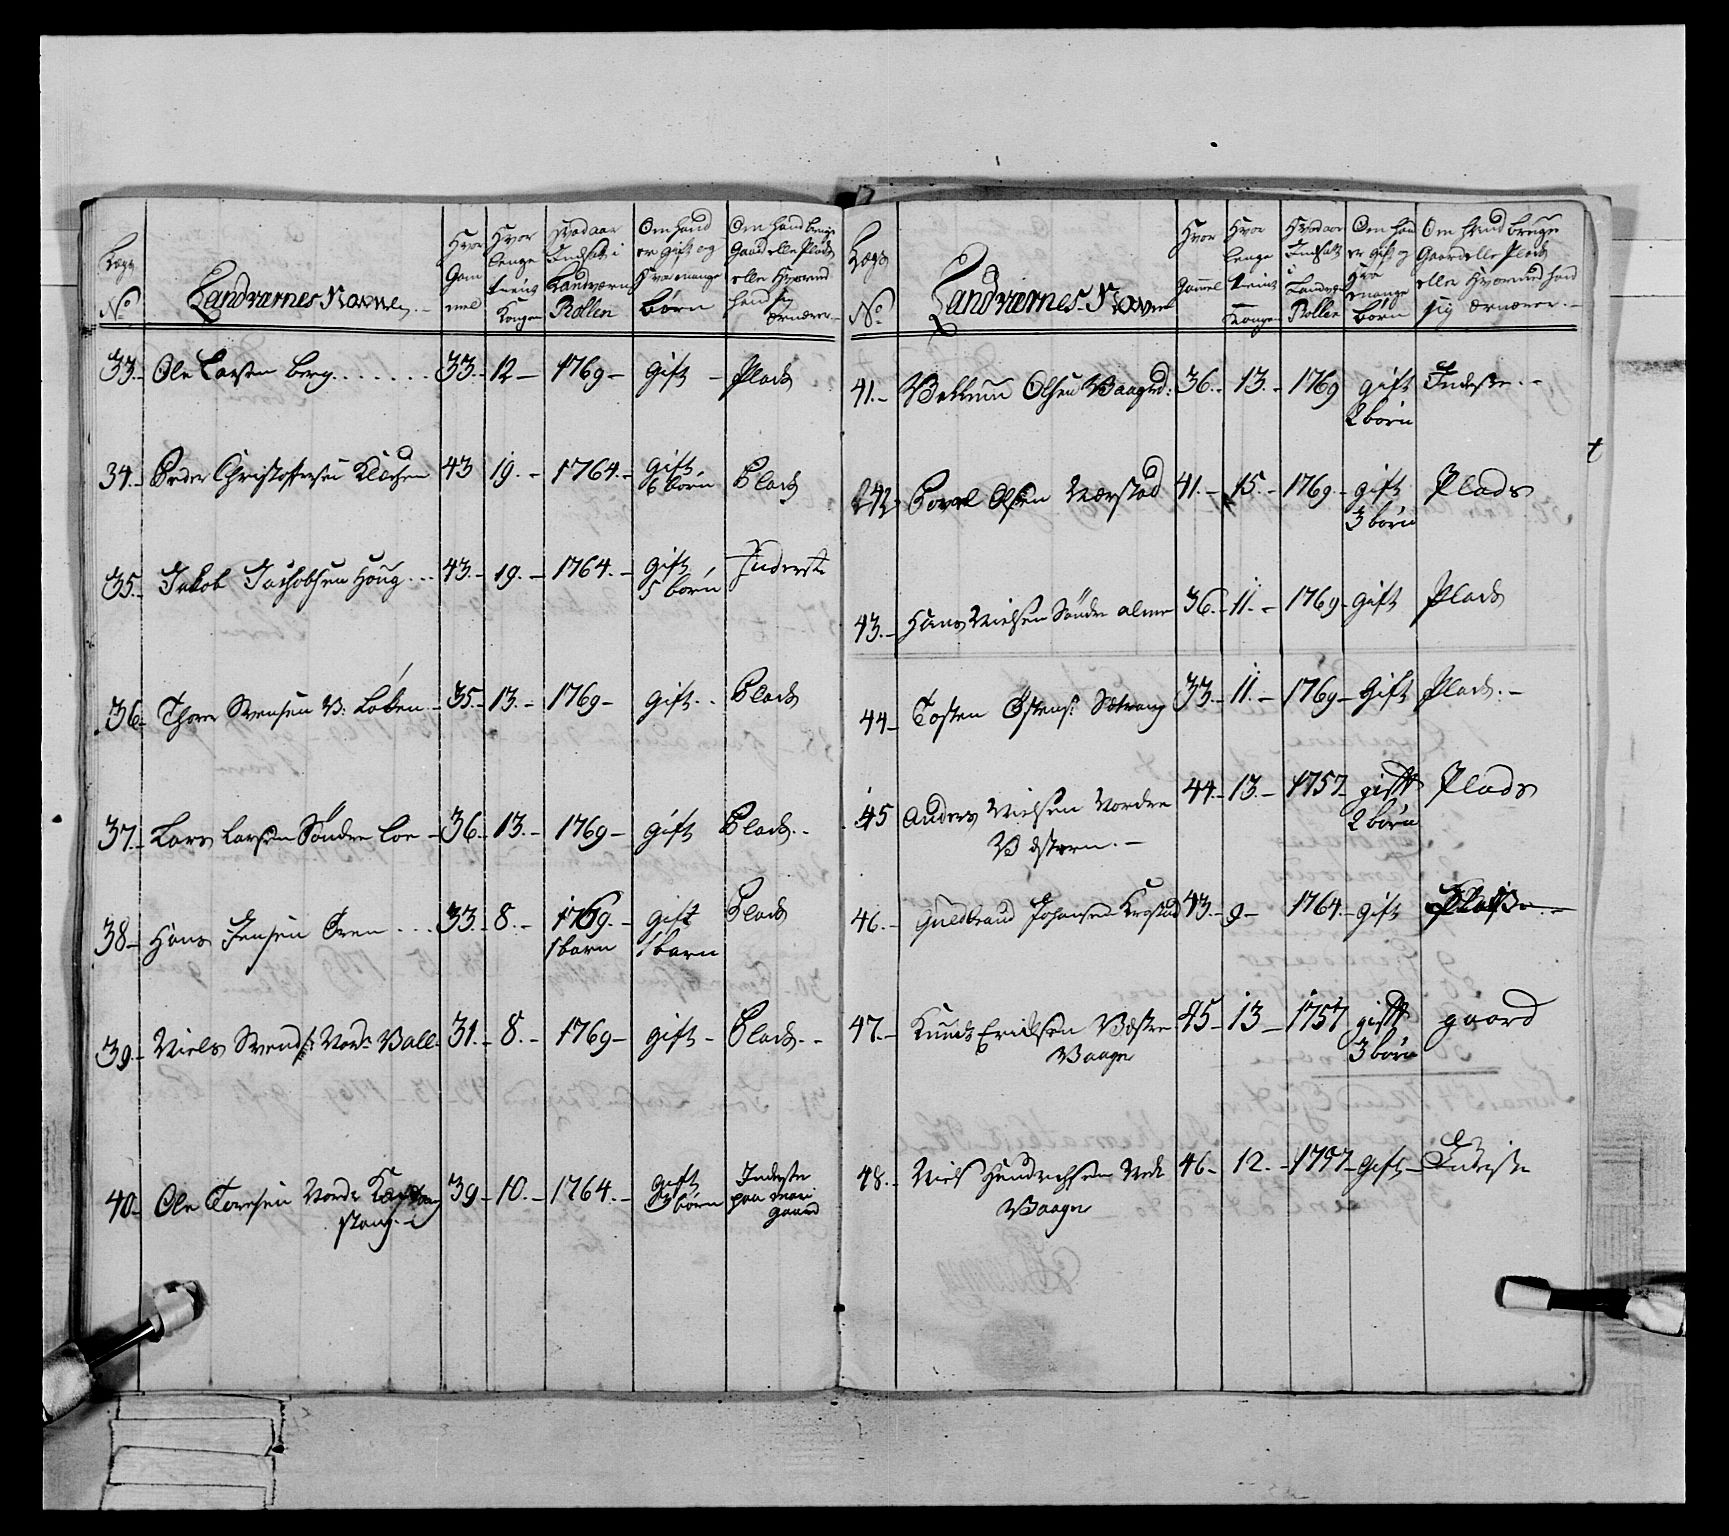 Lægs No
Landværnes Navne
Hvor Gammel
Hvor lenge tient Kongen
Hvad aar Indsatt i Landværns Rollen
Om hand er gift og Hvor mange børn
Om hand bruger Gaard elle Plads elle Hvormed hand sig ernærer
33. Ole Larsen Berg 33. 12 1769 gift Plads
34. Peder Christophersen 43 19. 1764. gift 6 børn Plads
35. Jakob Jachobsen Houg 43. 19. 1764. gift 5 børn Inderst
36. Thore Svensen V: Løken 35. 13. 1769 gift Plads
37. Lars Larsen Søndre Loe 36. 13. 1769 gift Plads
38 Hans Jensen Oren 33. 8. 1769. 1 barn gift 1 barn Plads
39. Niels Svends: Nor: Ball 31. 8. 1769 gift Plads
40. Ole Toresen Nordr
stang 39 10. 1764. gift 3 børn Inderste paa gaard
Lægs No
Landværnes Navne
Hvor Gammel
Hvor lenge tient Kongen
Hvad aar Indsatt i Landvær Rollen
Om hand er gift og Hvor mange børn
Om Hand bruger Gaard elle Plads elle Hvormed hand sig ernærer
41. Olsen Vaager 36. 13. 1769 gift 2 børn Inderste
42 Povel Olsen Nærstad 41. 15. 1769 gift 3 børn Plads
43. Hans Nielsen Søndre alme 36. 11. 1769 gift Plads
44 Tosten Østens: 33. 11. 1769 Gift Plads.
45 Anders Nielsen Nordre 44. 13. 1757 gifft 2 børn Plads
46. Guldbrand Johansen Krogstad 43. 9 1764 gift
47. Knud Ericksen Vestre
Vaager 45 13 1757 gifft 3 børn gaard
48. Niels Hendrichsen Nedr
Vaager 46 12. gift Inderste